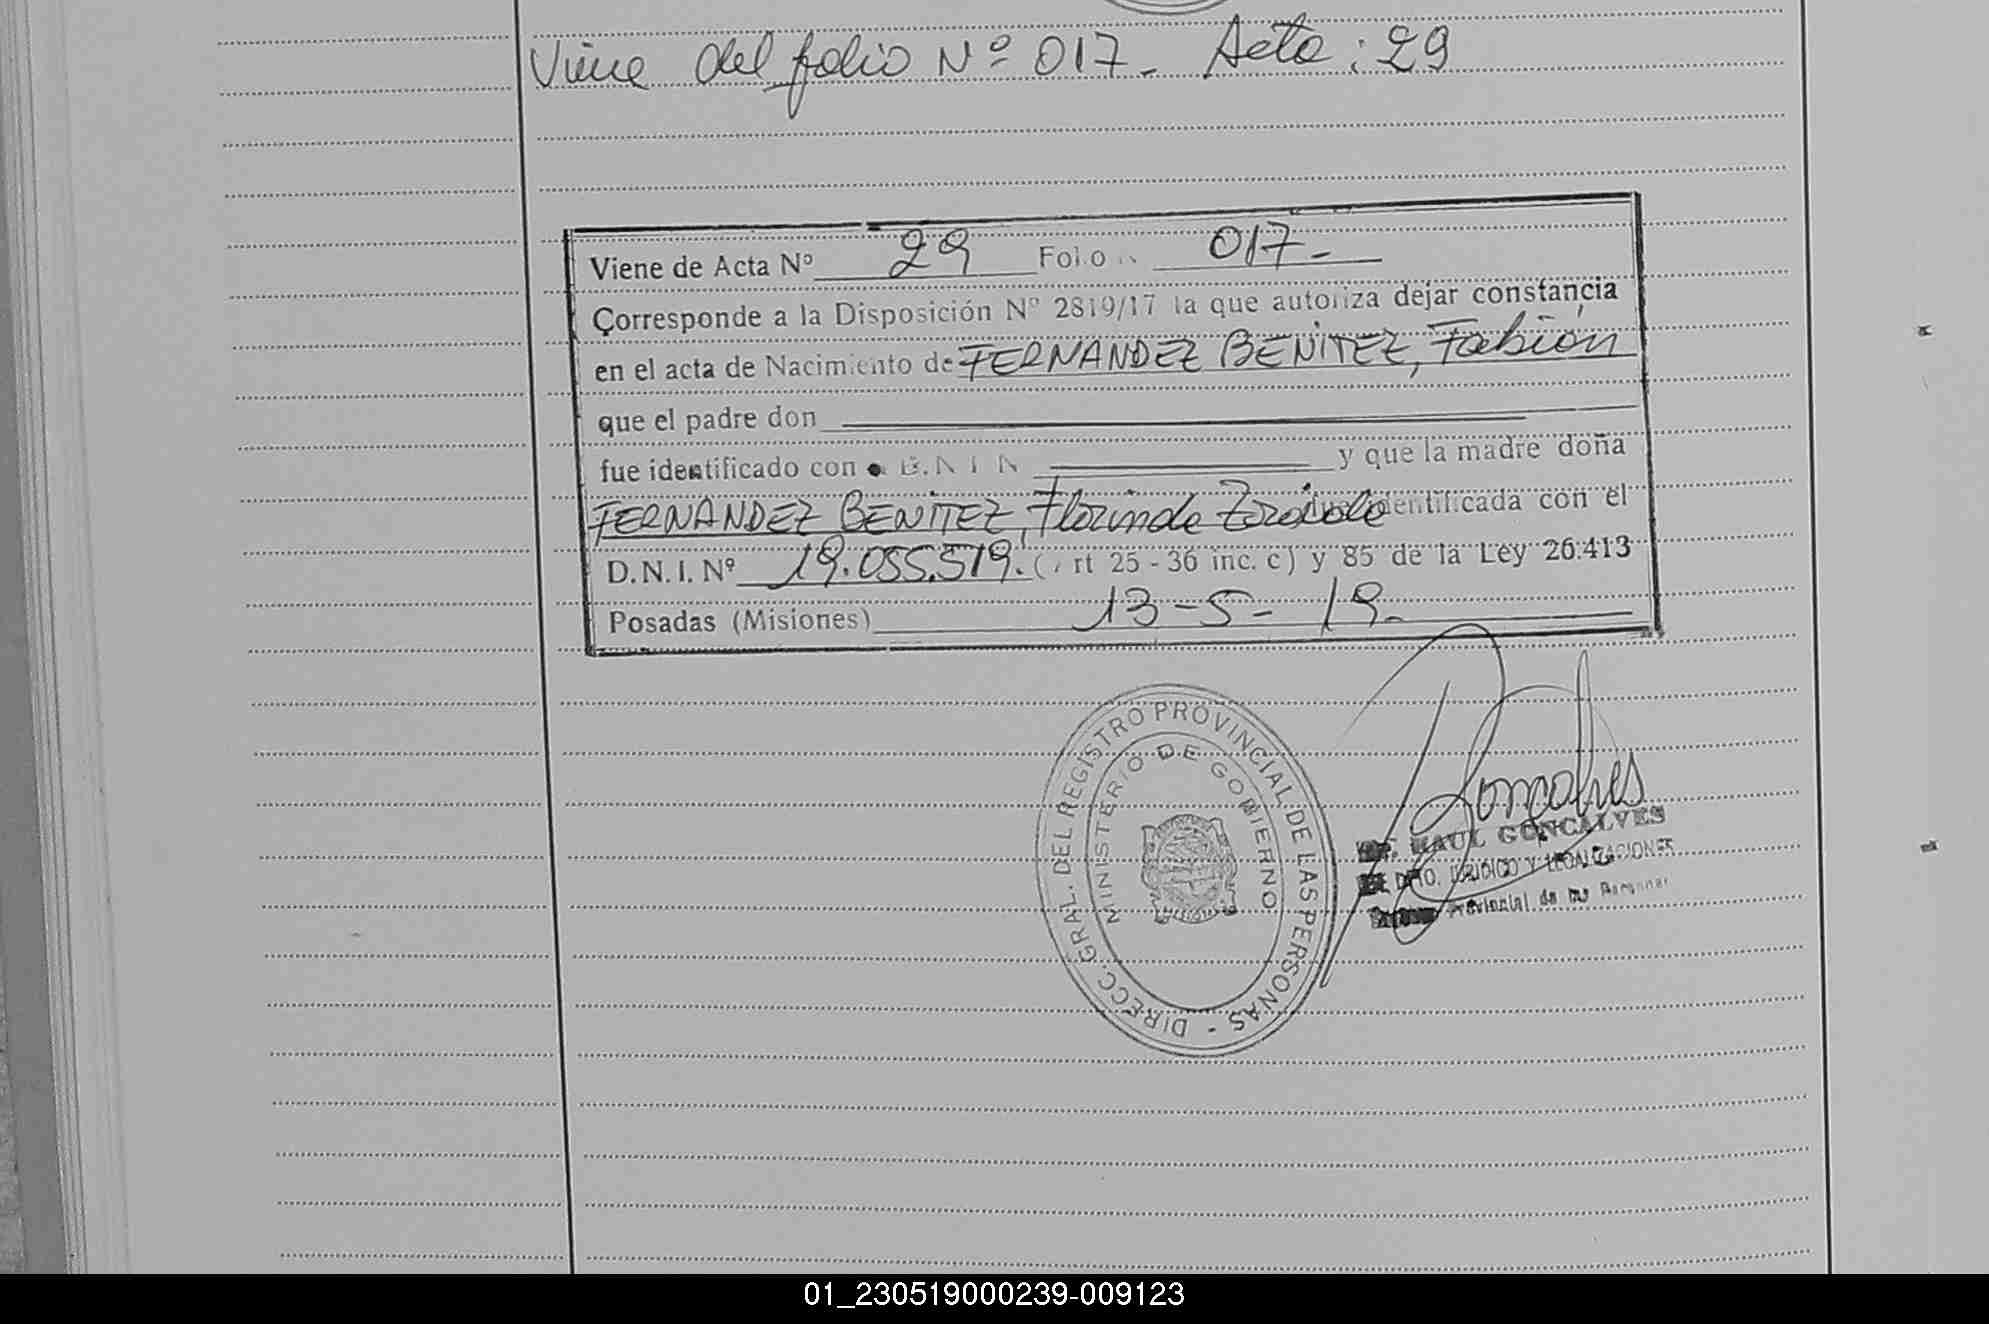 Viene del folio Nº 017 - Acta : 29
Viene de Acta Nº 29 Folio 017 -
Corresponde a la Disposición Nº 2819/17 la que autoriza dejar constancia
en el acta de Nacimiento de FERNANDEZ BENITEZ, Fabián
que el padre don
fue identificado con D.N.I. N y que la madre doña
FERNANDEZ BENITEZ, Florinda identificada con el
D.N.I. Nº 19.055.519. (Art 25 - 36 inc. c) y 85 de la Ley 26.413
Posadas (Misiones) 13 - 5 - 19.
DIRECC. GRAL. DEL REGISTRO PROVINCIAL DE LAS PERSONAS -
MINISTERIO DE GOBIERNO
Goncalves
RAUL GONCALVES
DPTO. JURIDICO Y LEGALIZACIONES
Provincial de las Personas
01_230519000239-009123